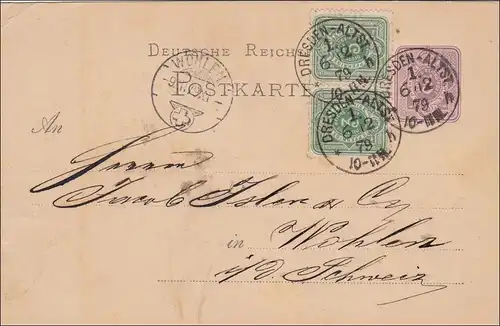 DEUTSCHE REICHS
POSTKARTE
WOHLEN
DRESDEN-ALTST.
1
6 12
79
10-11N.
DRESDEN-ALTST.
1
6 12
79
10-11N.
DRESDEN-ALTST.
1
6 12
79
10-11N.
An
Herren
Jacob Isler & Co
in Wohlen
i/d. Schweiz